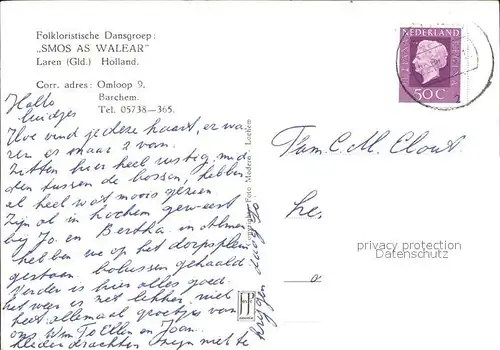 Folkloristische Dansgroep:
„SMOS AS WALEAR”
Laren (Gld.) Holland.
Corr. adres: Omloop 9,
Barchem.
Tel. 05738—365.
Hallo
luidjes
Hoe vind je deze kaart, er wa-
ren er maar 2 van.
Zitten hier heel rustig, mid
den tussen de bossen, hebben
al heel wat moois gezien.
Zijn al in Lochem geweest
bij Jo. en Bertha. in Almen
hebben we op het dorpsplein
gestaan. bolussen gehaald.
Verder is hier alles goed.
het weer is net lekker, niet
heet. allemaal groetjes van
ons Wim To Ellen en Joan.
Klederdrachten zijn niet te
krijgen
Copyright "Foto Modern" Lochem
NEDERLAND
50 C
2
Fam. C. M. Clout.
privacy protection
Datenschutz